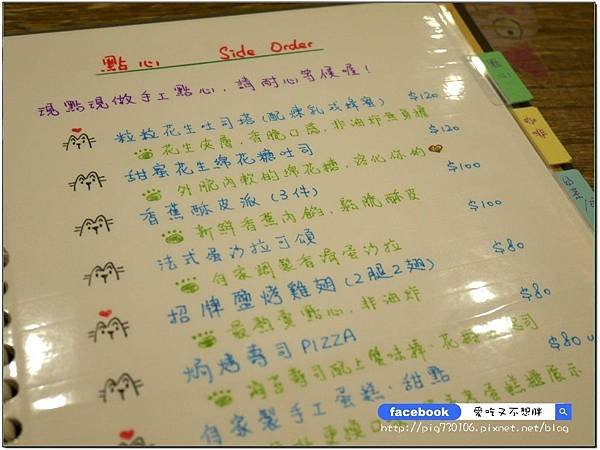 點心 Side Order
現點現做手工點心，請耐心等候喔！
粒粒花生吐司塔(配煉乳或蜂蜜) $120
花生夾層，香脆口感，非油炸無負擔
甜蜜花生綿花糖吐司 $120
外脆內軟的綿花糖，融化你的
香蕉酥皮派(3件) $100
新鮮香蕉內餡，鬆脆酥皮
法式蛋沙拉可頌 $100
自家調製香濃蛋沙拉
招牌鹽烤雞翅(2腿2翅) $80
最熱賣點心，非油炸
焗烤壽司PIZZA $80
海苔壽司配上
自家製手工蛋糕，甜點 $80
蛋糕櫃展示
點心
咖啡
facebook 愛吃又不想胖
http://pig730106.pixnet.net/blog